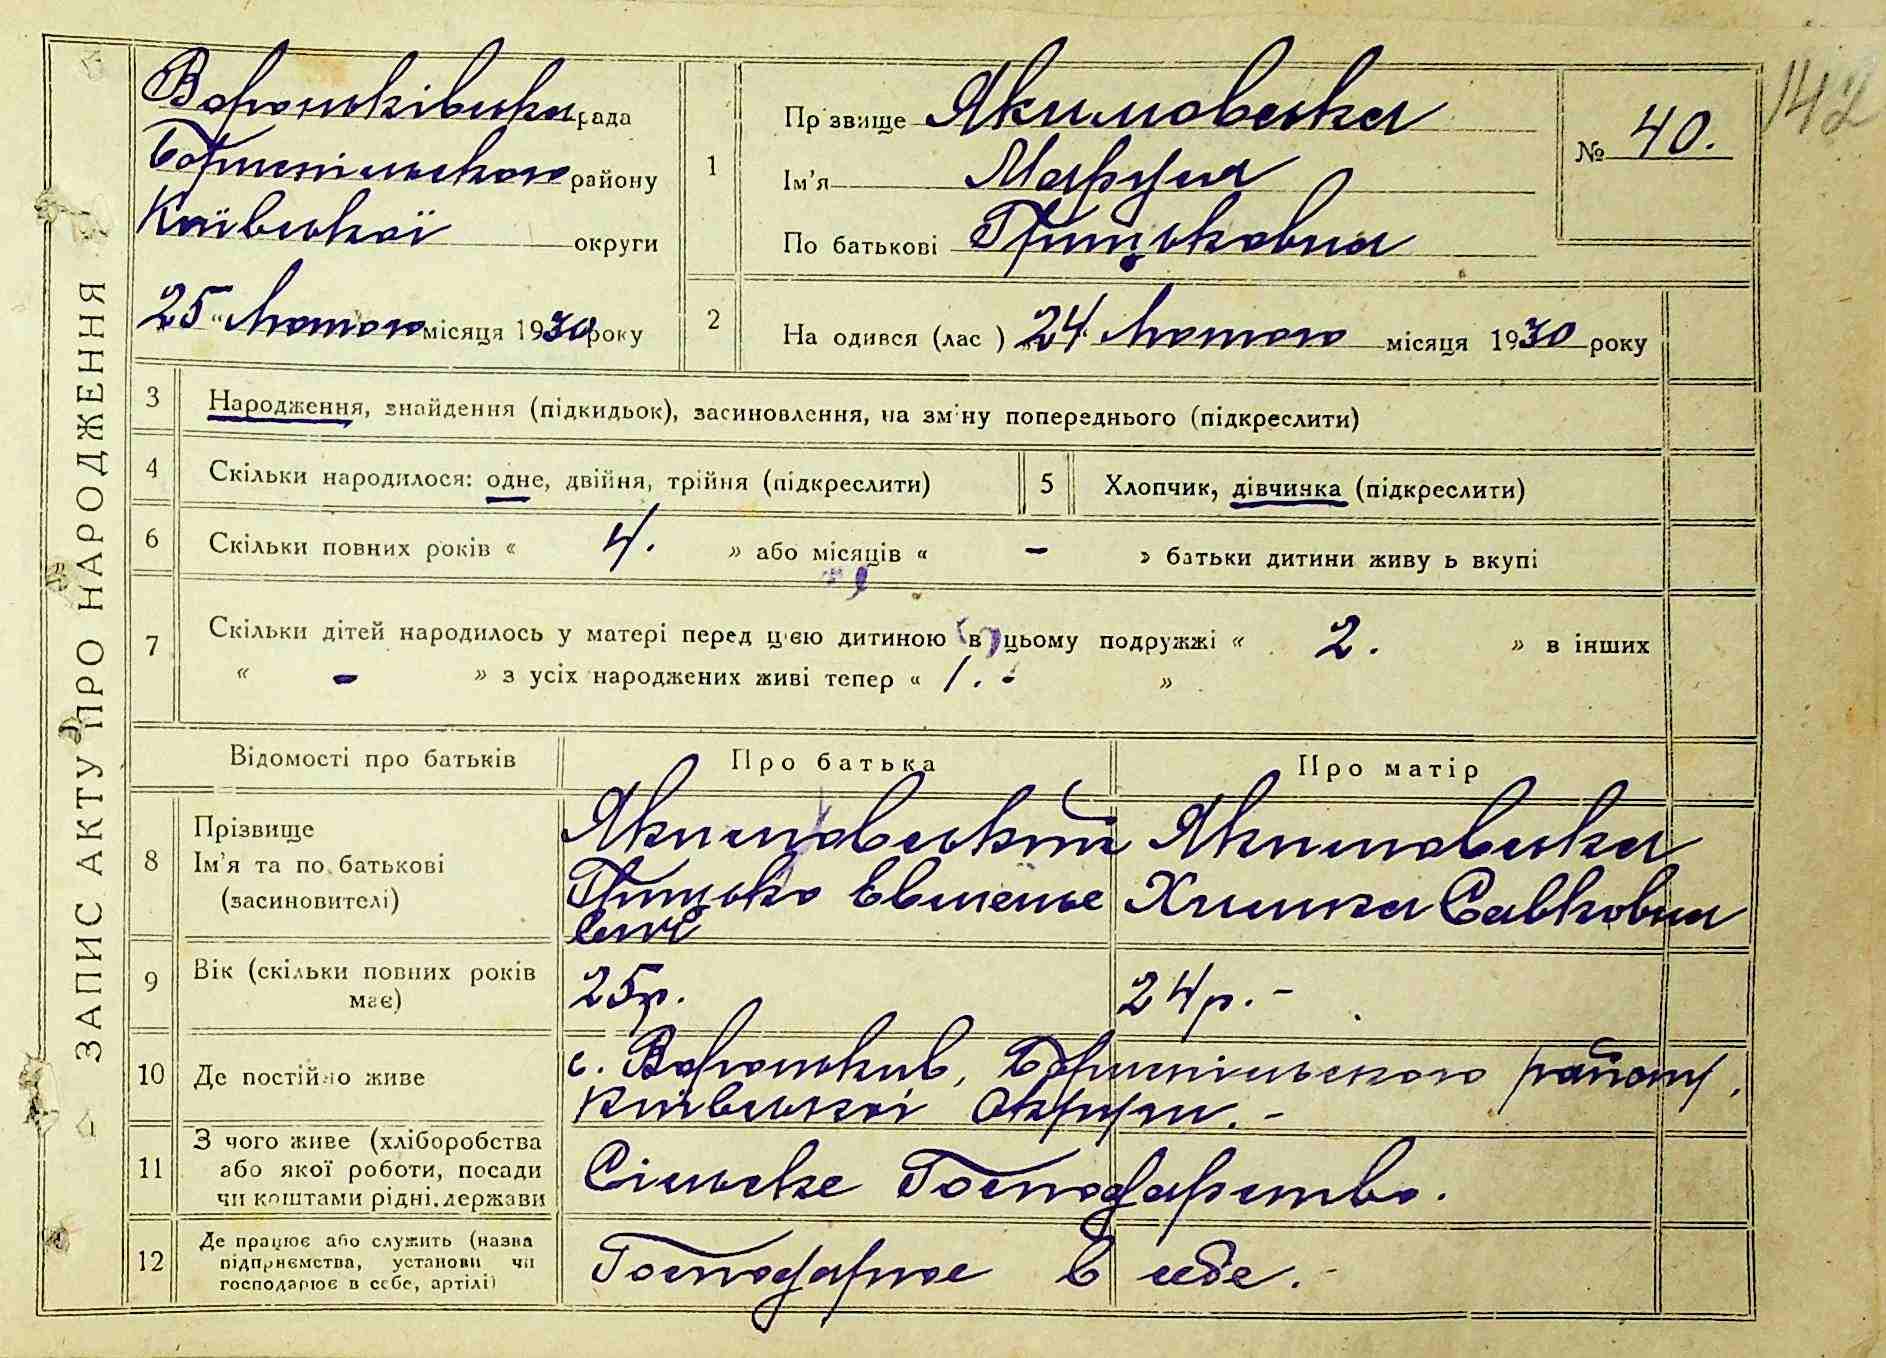 ЗАПИС АКТУ ПРО НАРОДЖЕННЯ
Вороньківська рада
Бориспільського району
Київської округи
25 " Лютого місяця 1930 року
1
Прізвище Якимовська
Ім'я Маруся
По батькові Грицьковна
№ 40.
142
2
На одився (лас ) „24" Лютого місяця 1930 року
3 Народження, знайдення (підкидьок), засиновлення, на зміну попереднього (підкреслити)
4 Скільки народилося: одне, двійня, трійня (підкреслити)
5 Хлопчик, дівчинка (підкреслити)
6 Скільки повних років « 4. » або місяців « - » батьки дитини живу ь вкупі
7 Скільки дітей народилось у матері перед цією дитиною (в) цьому подружжі « 2. » в інших
« - » з усіх народжених живі тепер « 1. - »
Відомості про батьків Про батька Про матір
8 Прізвище
Ім'я та по батькові
(засиновителі)
Якимовський
Грицько Евменье
вич
Якимовська
Химка Савковна
9 Вік (скільки повних років
має)
25р. 24р. -
10 Де постійно живе
с. Вороньків, Бориспільського району,
Київської Округи. -
11 З чого живе (хліборобства
або якої роботи, посади
чи коштами рідні, держави
Сільське Господарство.
12 Де працює або служить (назва
підприємства, установи чи
господарює в себе, артілі)
Господарює в себе. -